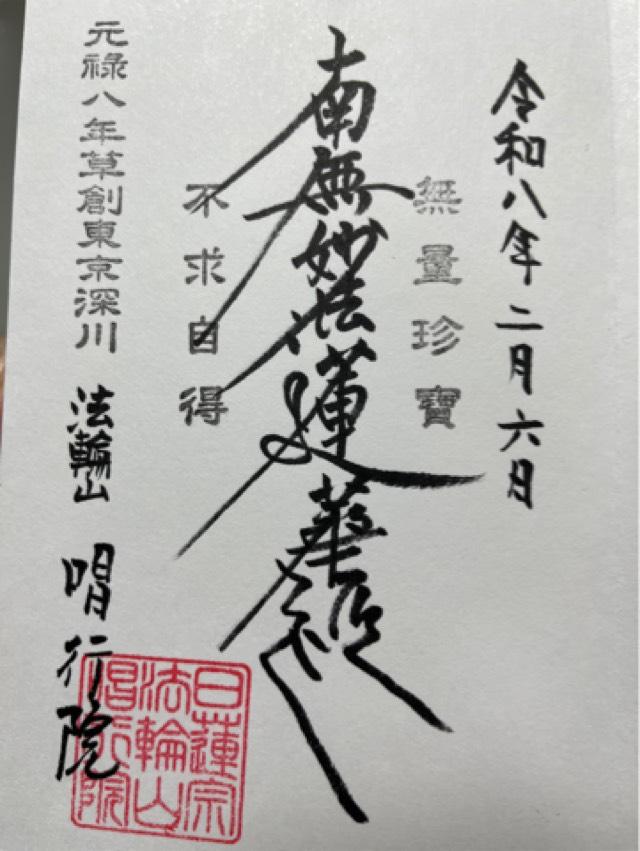 令和八年二月六日
無量珍寶
南無妙法蓮華経
不求自得
元禄八年草創東京深川
法輪山 唱行院
日蓮宗
法輪山
唱行院